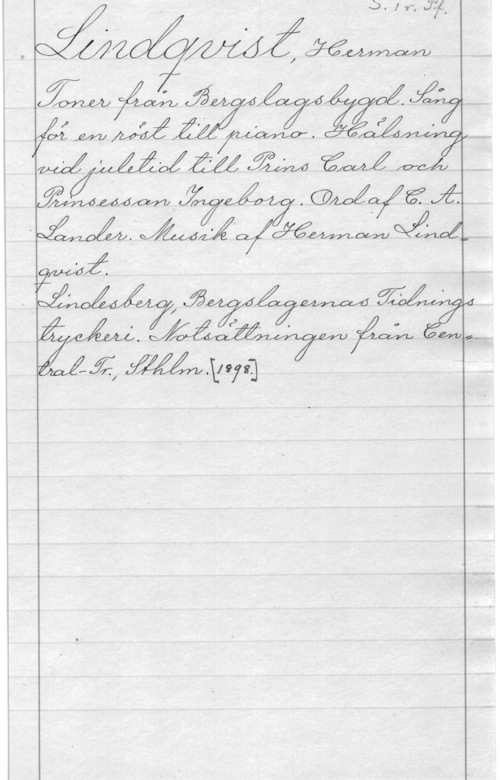 S. 1 r. Pf.
Lindqvist, Herman
Toner från Bergslagsbygd. Sång
för en röst till piano. Hälsning
vid juletid till Prins Carl och
Prinsessan Ingeborg. Ord af C. A.
Lander. Musik af Herman Lind=
qvist.
Lindesberg, Bergslagernas Tidnings
tryckeri. Notsättningen från Cen=
tral-Tr., Sthlm. [1898.]